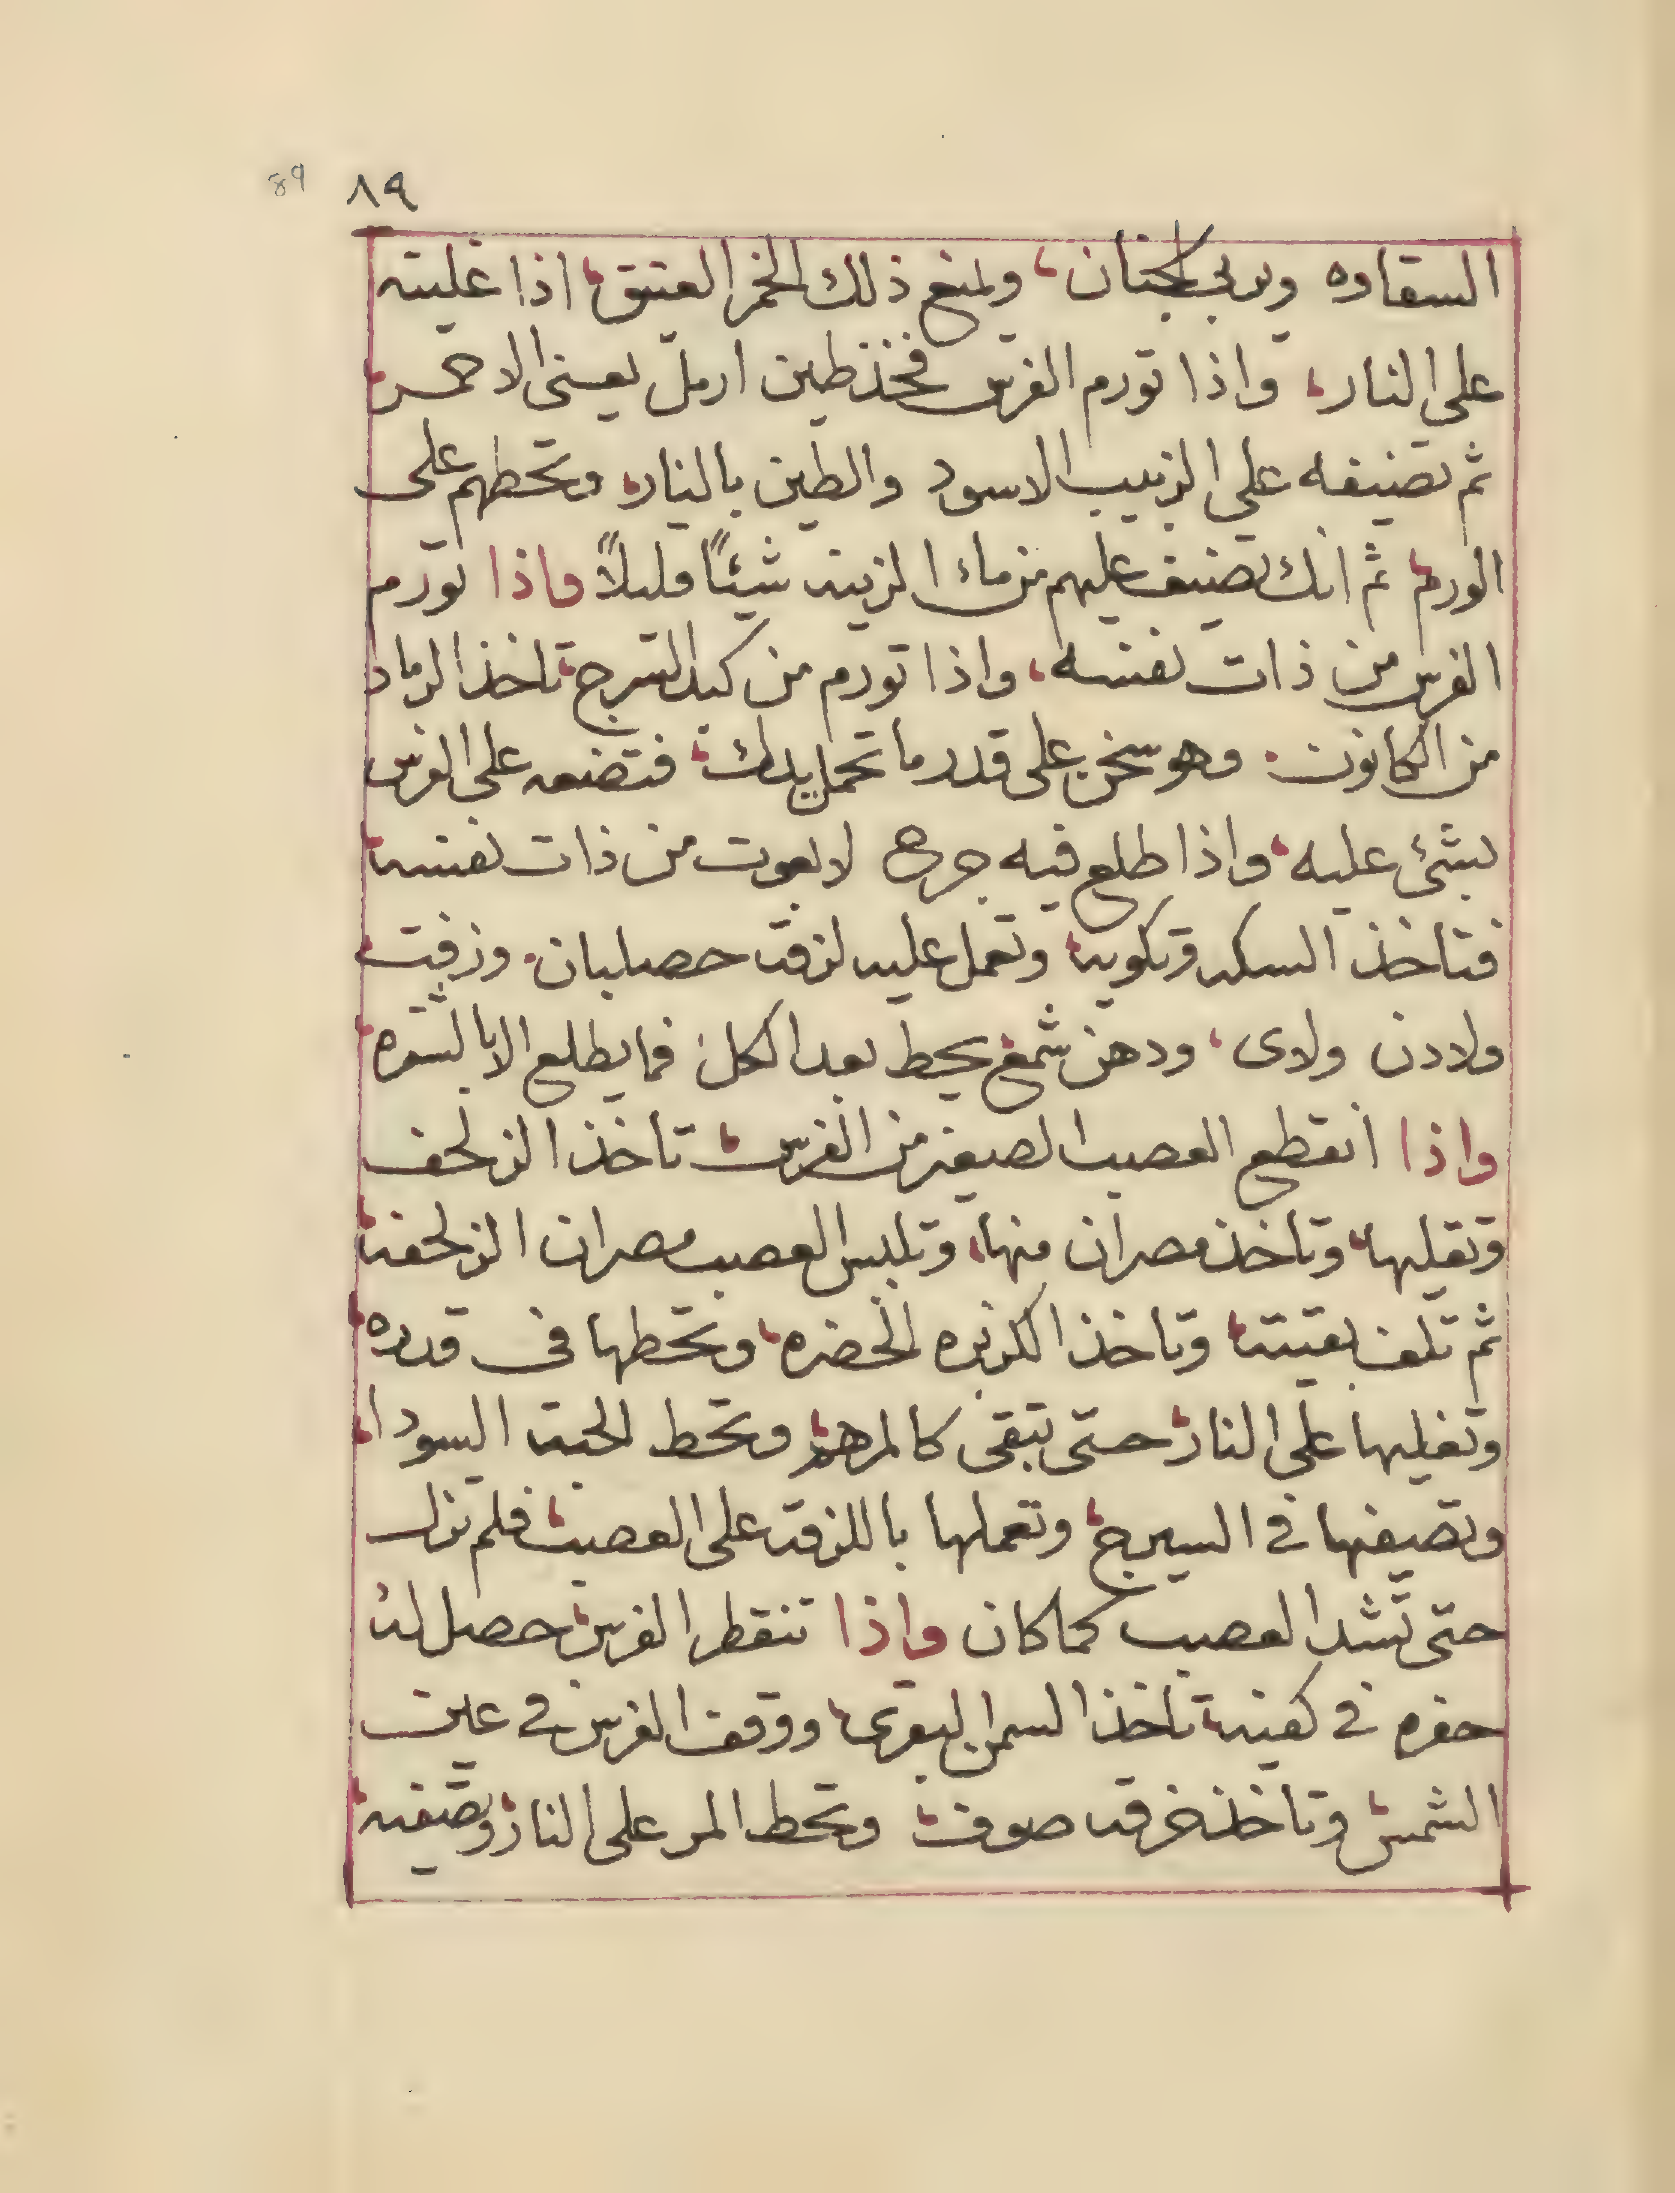 ٨٩ 89
السقاوه ويربي كجتان، ولمنع ذلك الخمر العتيق، اذا غليته
على النار، واذا تورم الفرس فخذ طين ارمل يعني الاحمر،
ثم تضيفه على الزبيب الاسود والطين بالنار، وتحطهم على
الورم، ثم انك تضيف عليهم من ماء الزيت شيئاً قليلاً واذا تورم
الفرس من ذات نفسه، واذا تورم من كبد السرج، تاخذ الرماد
من الكانون. وهو سخن على قدر ما تحمل يدك، فتضعه على الفرس
بشئ عليه، واذا طلع فيه جرح لا يعوت من ذات نفسه،
فتاخذ السكه وتكويه، وتعمل عليه لزقه حصلبان. وزفت،
ولادن ولادي، ودهن شمع يحط بعد الكل فما يطلع الا بالشوه
واذا انقطع العصب الصيغه من الفرس، تاخذ الزلحف
وتقليها، وتاخذ مصران منها، وتلبس العصب مصران الزلحفه،
ثم تلف بقيته، وتاخذ الكزبره الخضره، وتحطها في قدره،
وتغليها على النار، حتى تبقى كالمرهم، وتحط الحبه السودا،
وتضيفها في السيرج، وتعملها باللزقه على العصب، فلم تزل
حتى تشد العصب كما كان واذا تنقطر الفرس، حصل له
حفره في كفيه، تاخذ السمن البقري، ووقف الفرس في عين
الشمس، وتاخذ خرقه صوف، وتحط المر على النار، وتضيفه،